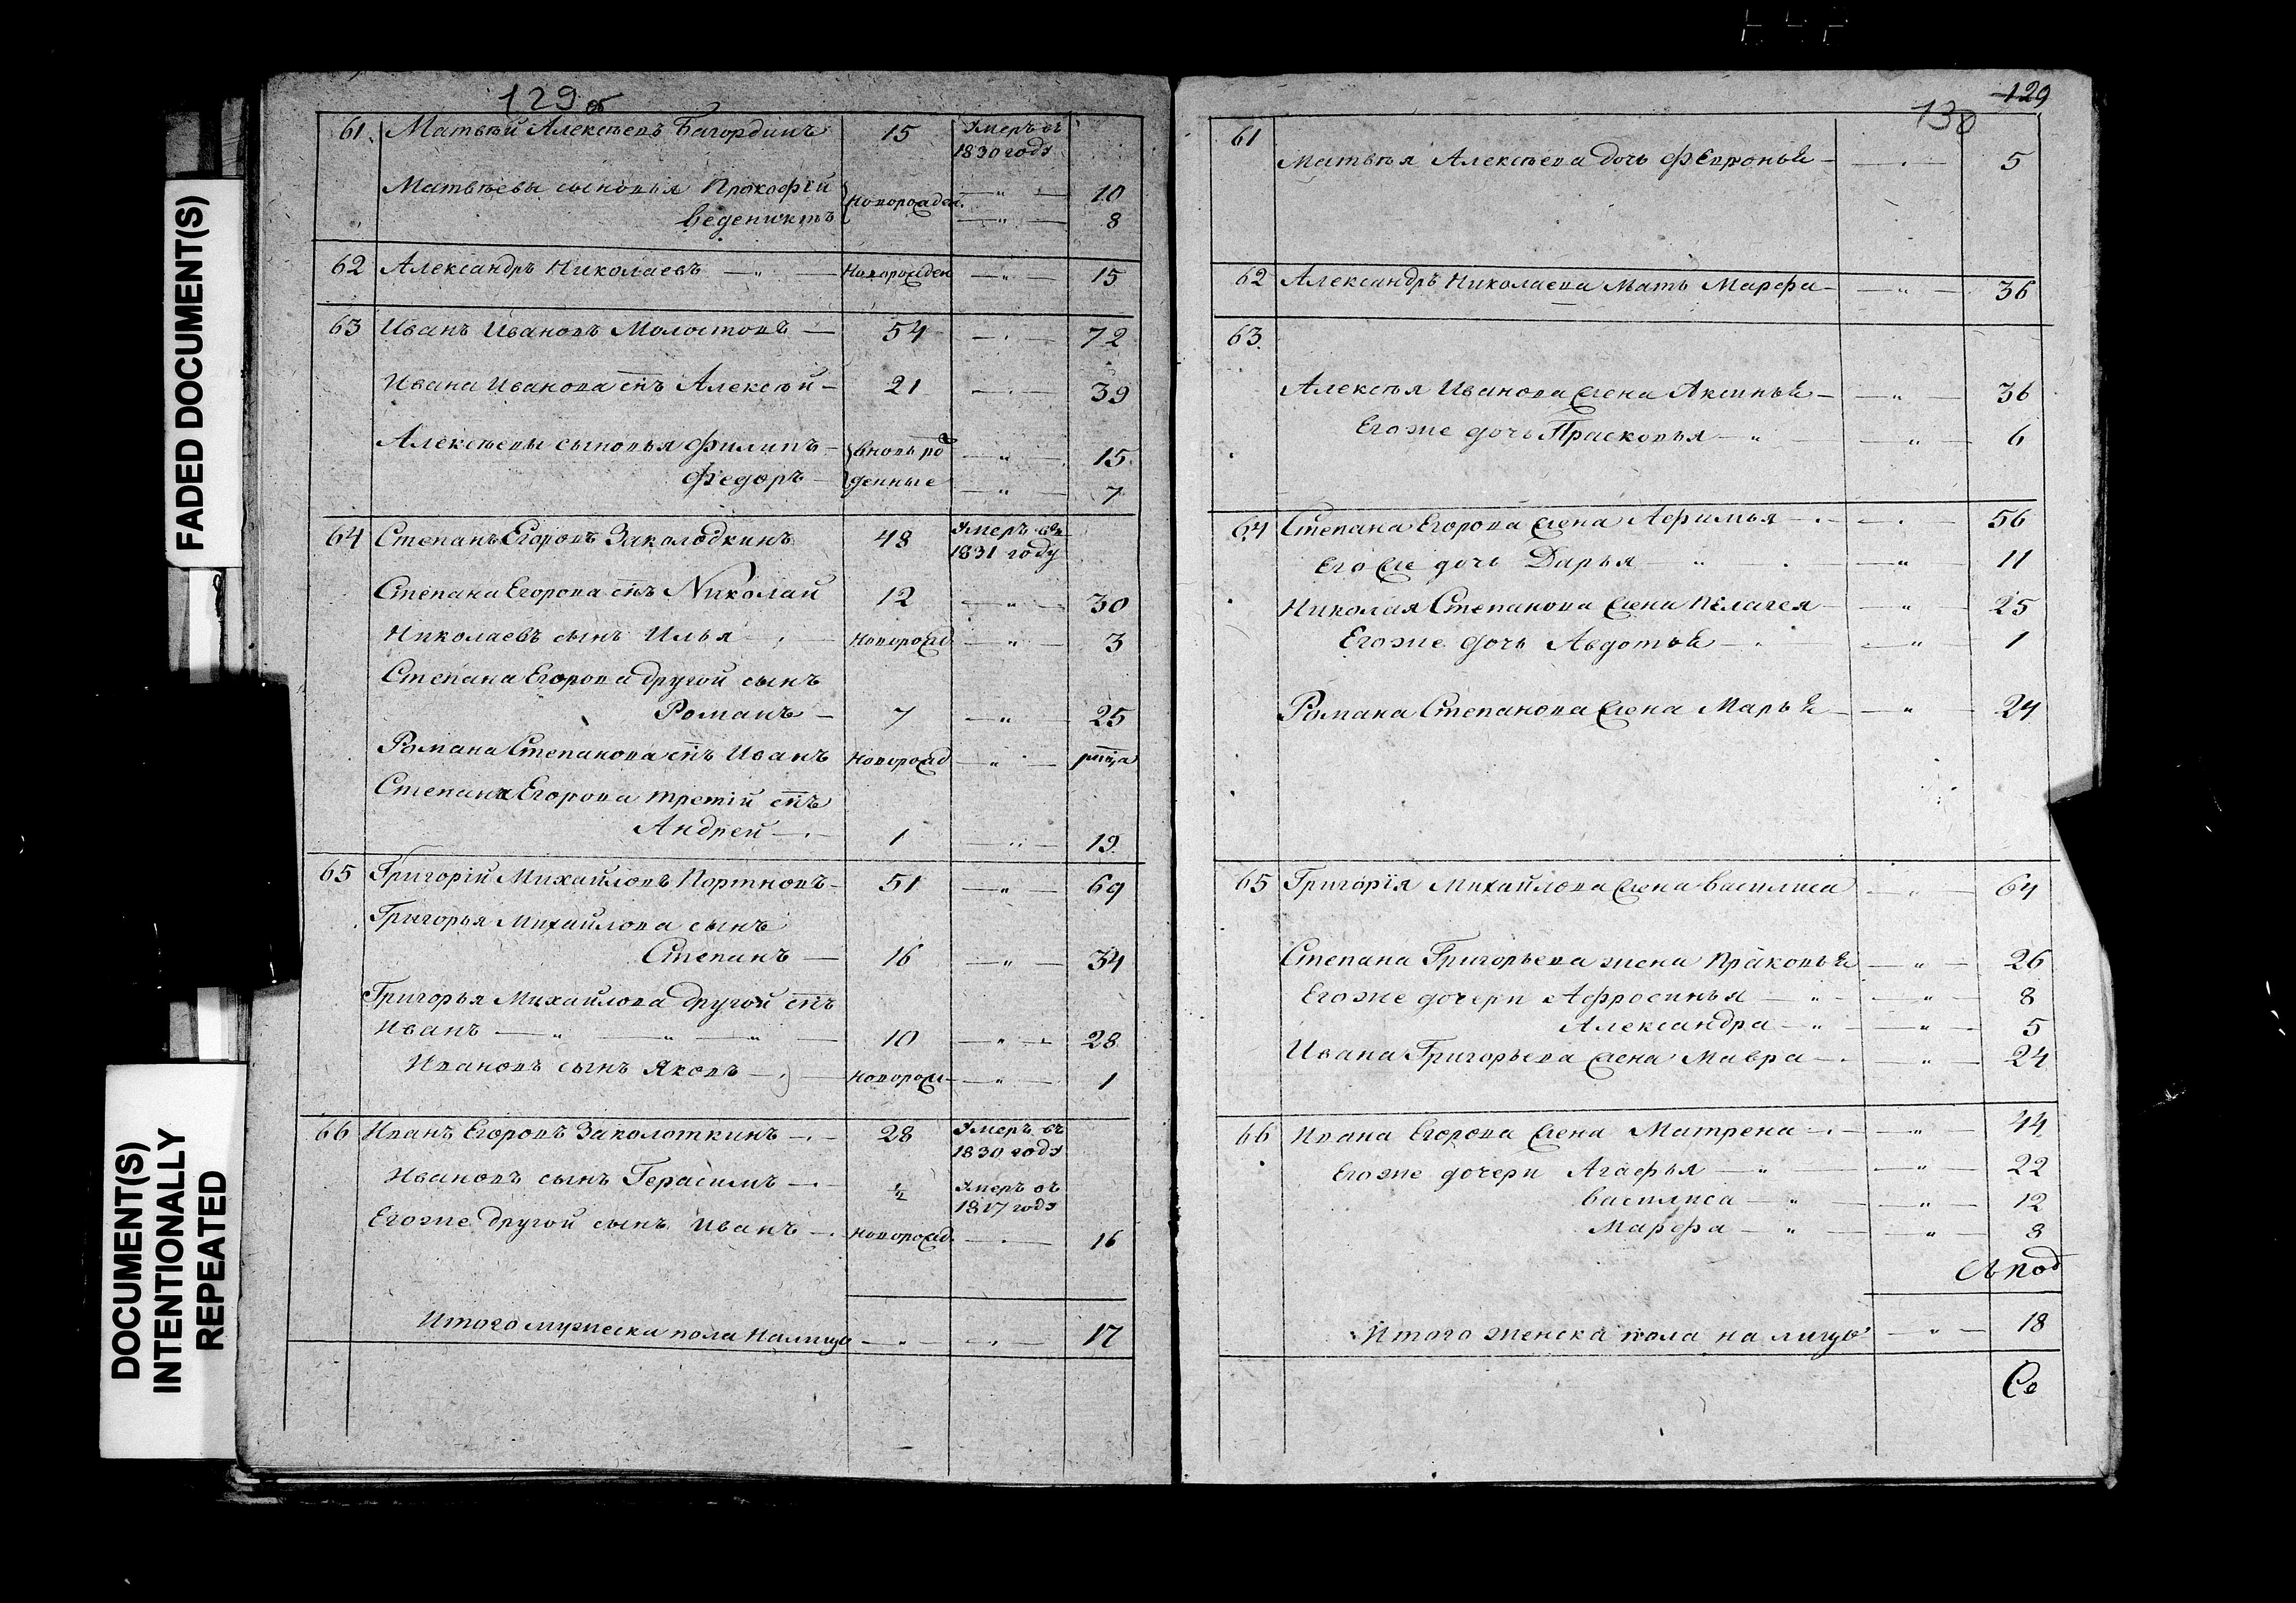 FADED DOCUMENT(S)
DOCUMENT(S)
INTENTIONALLY
REPEATED
129 об
61. Матвѣй Алексѣевъ Багординъ 15 Умеръ въ
1830 году
Матвѣевы сыновья Прокофей Новорожден. — " — 10
Веденихтъ — " — 8
62 Александръ Николаевъ — " — Новорожден — " — 15
63 Иванъ Ивановъ Молостовъ — 54 — " — 72
Ивана Иванова снъ Алексѣй — 21 — " — 39
Алексѣевы сыновья Филипъ — вновь рож — " — 15
Федоръ — денные — " — 7
64 Степанъ Егоровъ Заколодкинъ 48 Умеръ въ
1831 году
Степана Егорова снъ Николай 12 — " — 30
Николаевъ сынъ Илья — Новорожд — " — 3
Степана Егорова другой сынъ
Романъ — 7 — " — 25
Романа Степанова снъ Иванъ Новорожд — " —
Степана Егорова третій снъ
Андрей — 1 — " — 19
65 Григорій Михайловъ Портновъ — 51 — " — 69
Григорья Михайлова сынъ
Степанъ — 16 — " — 34
Григорья Михайлова другой снъ
Иванъ — " — " — " — 10 — " — 28
Ивановъ сынъ Яковъ — Новорож — " — 1
66 Иванъ Егоровъ Заколоткинъ — 28 Умеръ въ
1830 году
Ивановъ сынъ Герасимъ — ½ Умеръ въ
1817 году
Егоже другой сынъ Иванъ — Новорожд. — 16
Итого мужеска пола налицо — " — " — 17
129
130
61
Матвѣя Алексѣева дочь Февронья — " — 5
62 Александръ Николаева Мать Марфа — " — 36
63.
Алексѣя Иванова жена Аксинья — " — 36
Егоже дочь Прасковья — " — " — 6
64 Степана Егорова жена Афимья — " — 56
Его же дочь Дарья — " — " — 11
Николая Степанова жена Пелагея — " — 25
Егоже дочь Авдотья — " — 1
Романа Степанова жена Марья — " — 24
65 Григорія Михайлова жена Василиса — " — 64
Степана Григорьева жена Праковья — " — 26
Егоже дочери Афросинья — " — " — 8
Александра — " — " — 5
Ивана Григорьева жена Мавра — " — 24
66 Ивана Егорова жена Матрена — " — 44
Егоже дочери Агафья — " — " — 22
Василиса — " — " — 12
Марфа — " — " — 8
Итого женска пола на лицо — " — 18